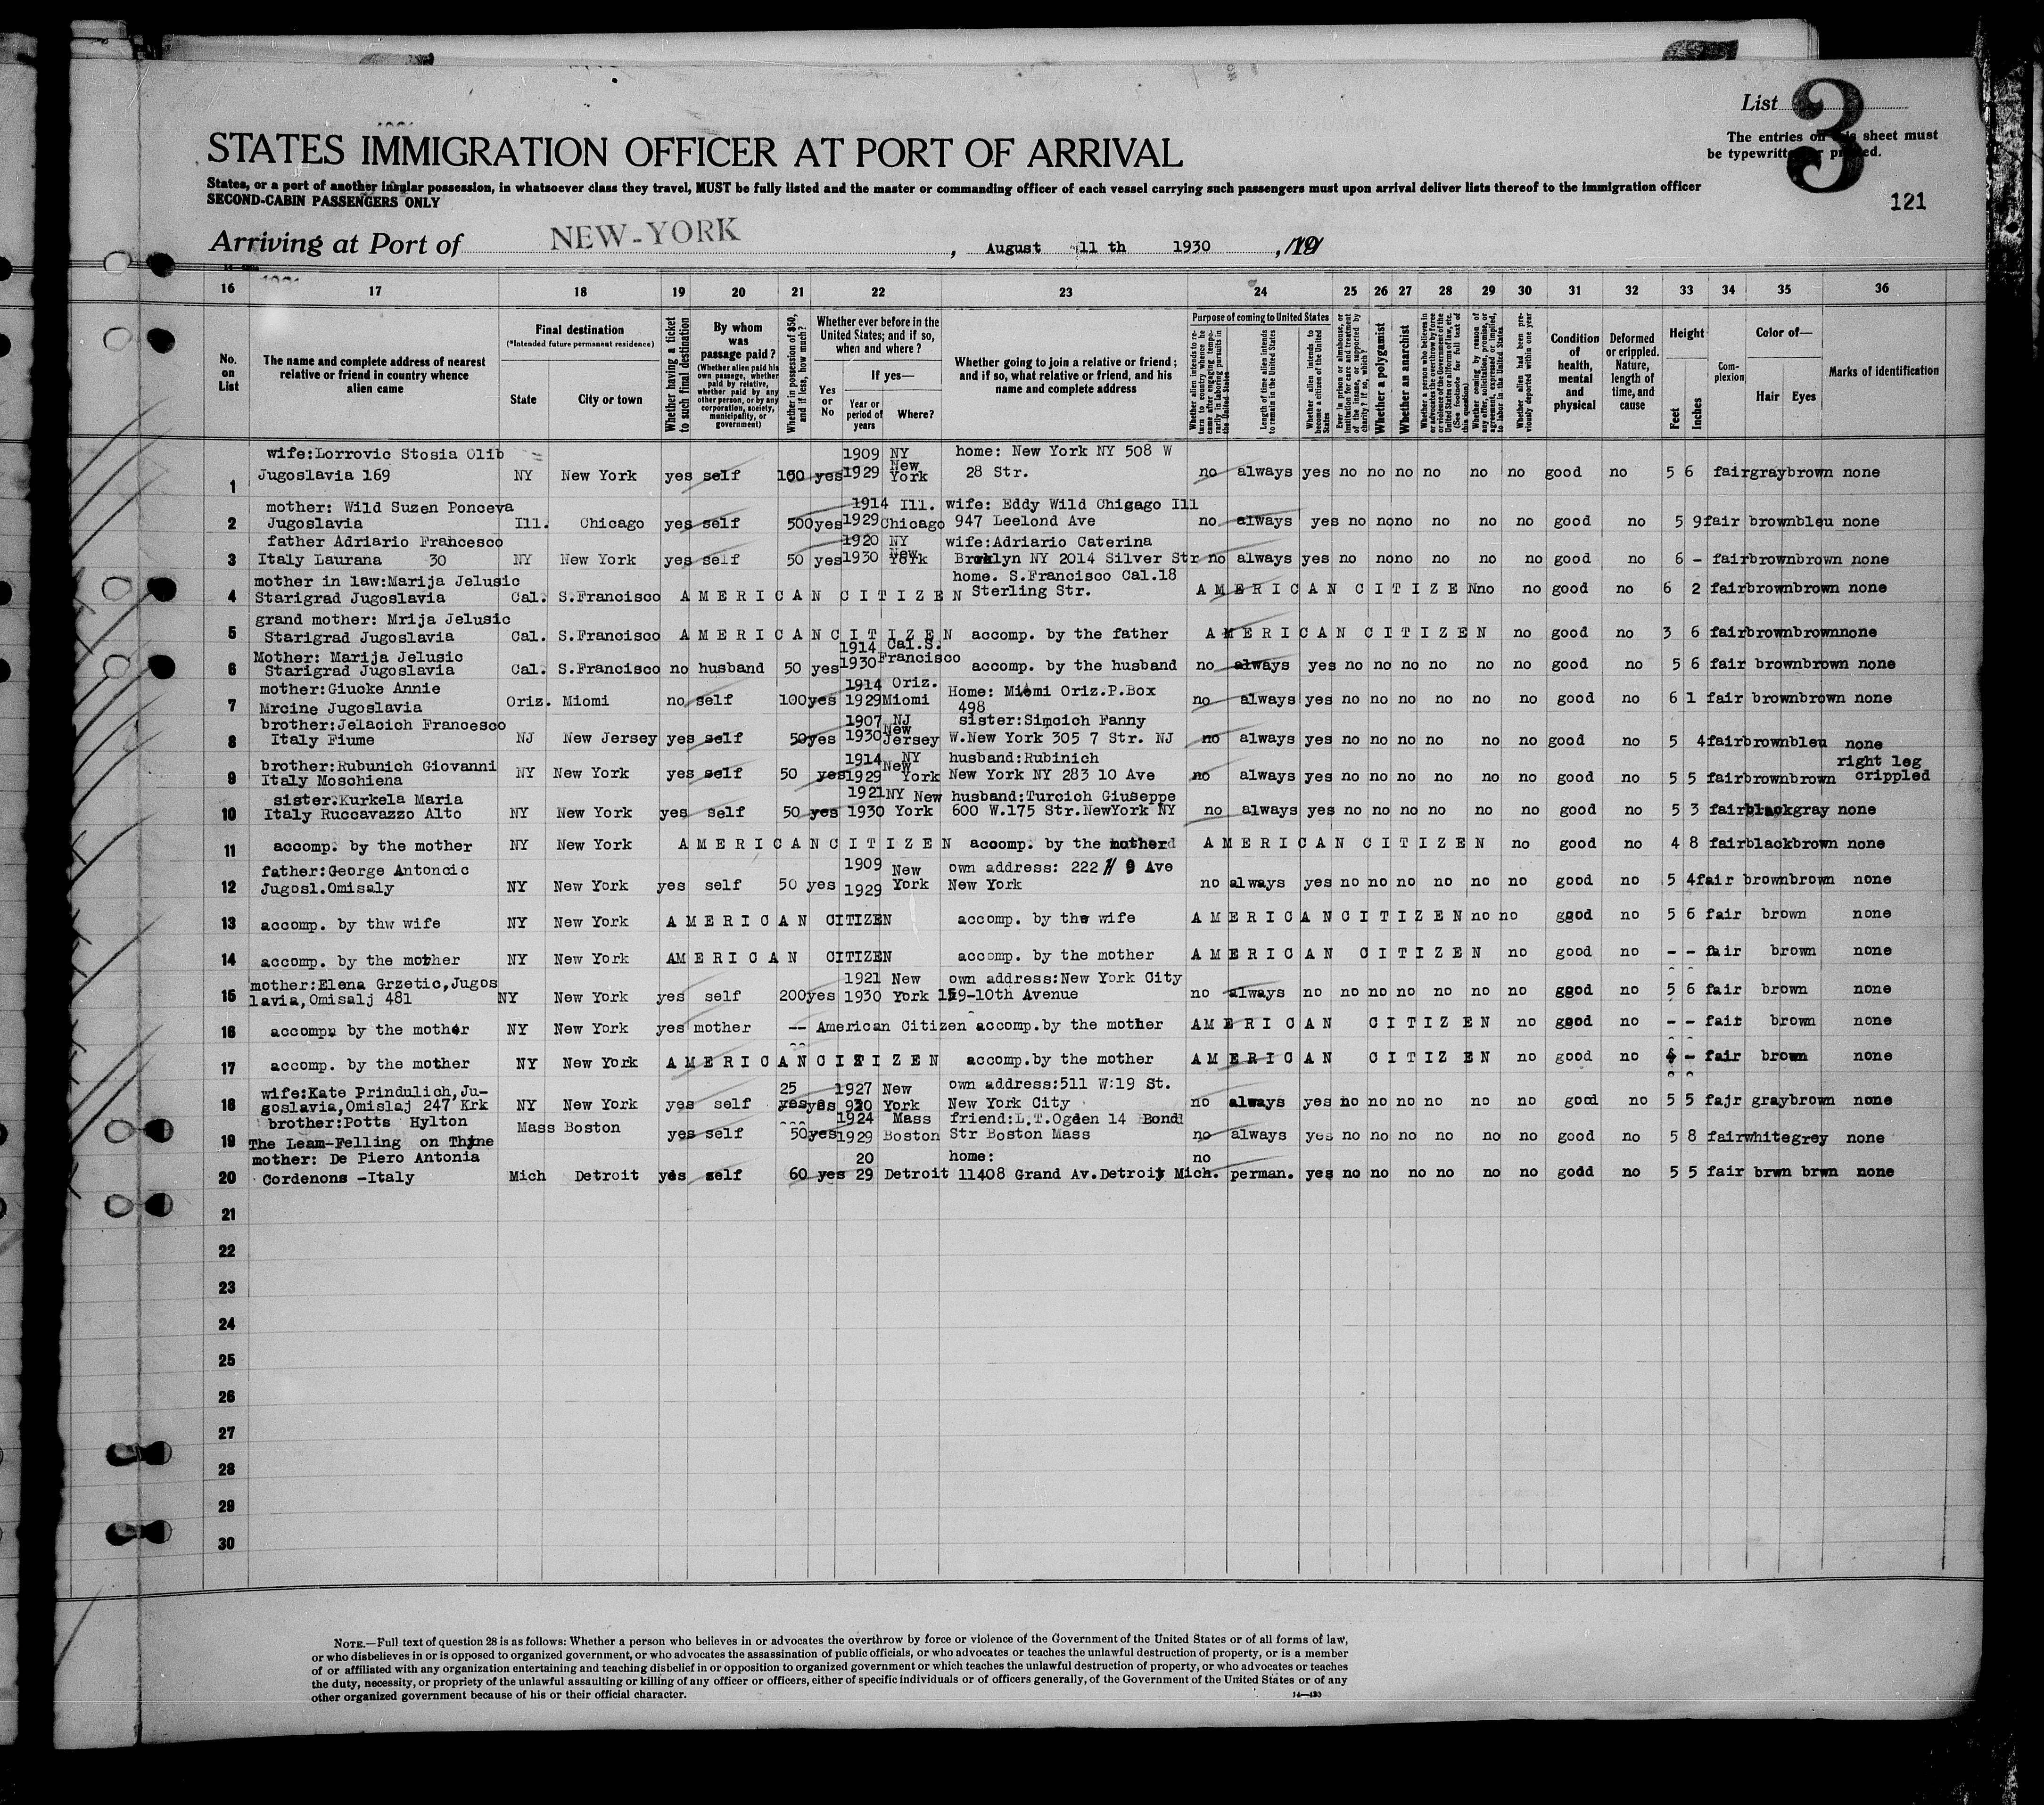 List 3
The entries on this sheet must
be typewritten or printed.
STATES IMMIGRATION OFFICER AT PORT OF ARRIVAL
States, or a port of another insular possession, in whatsoever class they travel, MUST be fully listed and the master or commanding officer of each vessel carrying such passengers must upon arrival deliver lists thereof to the immigration officer
SECOND-CABIN PASSENGERS ONLY
121
Arriving at Port of NEW-YORK, August 11 th 1930, 19
16 17 18 19 20 21 22 23 24 25 26 27 28 29 30 31 32 33 34 35 36
No. on List
The name and complete address of nearest relative or friend in country whence alien came
Final destination
(*Intended future permanent residence)
State
City or town
Whether having a ticket to such final destination
By whom was passage paid?
(Whether alien paid his own passage, whether paid by relative, whether paid by any other person, or by any corporation, society, municipality, or government)
Whether in possession of $50, and if less, how much?
Whether ever before in the United States; and if so, when and where?
Yes or No
If yes—
Year or period of years
Where?
Whether going to join a relative or friend; and if so, what relative or friend, and his name and complete address
Purpose of coming to United States
Whether alien intends to return to country whence he came after engaging temporarily in laboring pursuits in the United States
Length of time alien intends to remain in the United States
Whether alien intends to become a citizen of the United States
Ever in prison or almshouse, or institution for care and treatment of the insane, or supported by charity? If so, which?
Whether a polygamist
Whether an anarchist
Whether a person who believes in or advocates the overthrow by force or violence of the Government of the United States or all forms of law, etc. (See footnote for full text of this question)
Whether coming by reason of any offer, solicitation, promise, or agreement, expressed or implied, to labor in the United States
Whether alien had been previously deported within one year
Condition of health, mental and physical
Deformed or crippled. Nature, length of time, and cause
Height
Feet
Inches
Complexion
Color of—
Hair Eyes
Marks of identification
wife:Lorrovic Stosia Olib 1909 NY home: New York NY 508 W
1 Jugoslavia 169 NY New York yes self 100 yes 1929 New York 28 Str. no always yes no no no no no no good no 5 6 fair gray brown none
mother: Wild Suzen Ponceva 1914 Ill. wife: Eddy Wild Chigago Ill
2 Jugoslavia Ill. Chicago yes self 500 yes 1929 Chicago 947 Leelond Ave no always yes no no no no no no good no 5 9 fair brown bleu none
father Adriario Francesco 1920 NY wife:Adriario Caterina
3 Italy Laurana 30 NY New York yes self 50 yes 1930 New York Brooklyn NY 2014 Silver Str no always yes no no no no no no good no 6 - fair brown brown none
mother in law:Marija Jelusic home. S.Francisco Cal.18
4 Starigrad Jugoslavia Cal. S.Francisco AMERICAN CITIZEN Sterling Str. AMERICAN CITIZEN no no good no 6 2 fair brown brown none
grand mother: Mrija Jelusic
5 Starigrad Jugoslavia Cal. S.Francisco AMERICAN CITIZEN accomp. by the father AMERICAN CITIZEN no good no 3 6 fair brown brown none
Mother: Marija Jelusic 1914 Cal.S.
6 Starigrad Jugoslavia Cal. S.Francisco no husband 50 yes 1930 Francisco accomp. by the husband no always yes no no no no no no good no 5 6 fair brown brown none
mother:Giucke Annie 1914 Oriz. Home: Miomi Oriz.P.Box
7 Mrcine Jugoslavia Oriz. Miomi no self 100 yes 1929 Miomi 498 no always yes no no no no no no good no 6 1 fair brown brown none
brother:Jelacich Francesco 1907 NJ sister:Simcich Fanny
8 Italy Fiume NJ New Jersey yes self 50 yes 1930 New Jersey W.New York 305 7 Str. NJ no always yes no no no no no no good no 5 4 fair brown bleu none
brother:Rubunich Giovanni 1914 NY husband:Rubinich right leg
9 Italy Moschiena NY New York yes self 50 yes 1929 New York New York NY 283 10 Ave no always yes no no no no no no good no 5 5 fair brown brown crippled
sister:Kurkela Maria 1921 NY New husband:Turcich Giuseppe
10 Italy Ruccavazzo Alto NY New York yes self 50 yes 1930 York 600 W.175 Str.NewYork NY no always yes no no no no no no good no 5 3 fair black gray none
11 accomp. by the mother NY New York AMERICAN CITIZEN accomp. by the mother AMERICAN CITIZEN no good no 4 8 fair black brown none
father:George Antoncic 1909 New own address: 222 9 Ave
12 Jugosl.Omisaly NY New York yes self 50 yes 1929 York New York no always yes no no no no no no good no 5 4 fair brown brown none
13 accomp. by thw wife NY New York AMERICAN CITIZEN accomp. by the wife AMERICAN CITIZEN no no good no 5 6 fair brown none
14 accomp. by the mother NY New York AMERICAN CITIZEN accomp. by the mother AMERICAN CITIZEN no good no - - fair brown none
mother:Elena Grzetic,Jugos 1921 New own address:New York City
15 lavia,Omisalj 481 NY New York yes self 200 yes 1930 York 159-10th Avenue no always no no no no no no no good no 5 6 fair brown none
16 accomp. by the mother NY New York yes mother -- American Citizen accomp.by the mother AMERICAN CITIZEN no good no - - fair brown none
17 accomp. by the mother NY New York AMERICAN CITIZEN accomp.by the mother AMERICAN CITIZEN no good no - fair brown none
wife:Kate Prindulich,Ju- 25 1927 New own address:511 W:19 St.
18 goslavia,Omislaj 247 Krk NY New York yes self yes 930 York New York City no always yes no no no no no no good no 5 5 fajr gray brown none
brother:Potts Hylton Mass Boston 1924 Mass friend:L.T.Ogden 14 Bond
19 The Leam-Felling on Thyne yes self 50 yes 1929 Boston Str Boston Mass no always yes no no no no no no good no 5 8 fair white grey none
mother: De Piero Antonia 20 home: no
20 Cordenons -Italy Mich Detroit yes self 60 yes 29 Detroit 11408 Grand Av.Detroit Mich. perman. yes no no no no no no godd no 5 5 fair brwn brwn none
21
22
23
24
25
26
27
28
29
30
NOTE.—Full text of question 28 is as follows: Whether a person who believes in or advocates the overthrow by force or violence of the Government of the United States or of all forms of law,
or who disbelieves in or is opposed to organized government, or who advocates the assassination of public officials, or who advocates or teaches the unlawful destruction of property, or is a member
of or affiliated with any organization entertaining and teaching disbelief in or opposition to organized government or which teaches the unlawful destruction of property, or who advocates or teaches
the duty, necessity, or propriety of the unlawful assaulting or killing of any officer or officers, either of specific individuals or of officers generally, of the Government of the United States or of any
other organized government because of his or their official character.